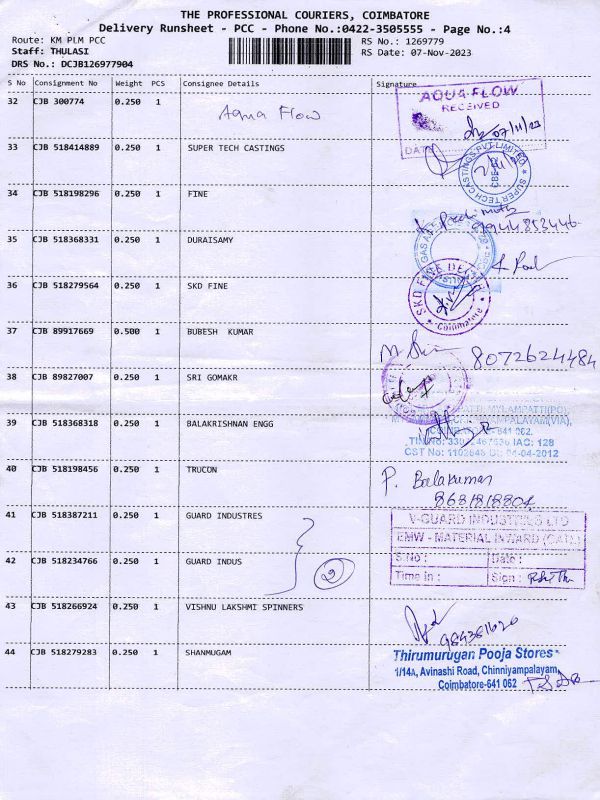 THE PROFESSIONAL COURIERS, COIMBATORE
Delivery Runsheet - PCC - Phone No.:0422-3505555 - Page No.:4
Route: KM PLM PCC RS No.: 1269779
Staff: THULASI RS Date: 07-Nov-2023
DRS No.: DCJB126977904
S No Consignment No Weight PCS Consignee Details Signature
32 CJB 300774 0.250 1 Aqua Flow
AQUA-FLOW
RECEIVED
07/11/23
DATE
33 CJB 518414889 0.250 1 SUPER TECH CASTINGS
SUPERTECH CASTINGS PVT LIMITED
34 CJB 518198296 0.250 1 FINE
35 CJB 518368331 0.250 1 DURAISAMY
36 CJB 518279564 0.250 1 SKD FINE
Coimbatore
37 CJB 89917669 0.500 1 BUBESH KUMAR
8072624484
38 CJB 89827007 0.250 1 SRI GOMAKR
39 CJB 518368318 0.250 1 BALAKRISHNAN ENGG
40 CJB 518198456 0.250 1 TRUCON
P. Balakumar
8681818804
41 CJB 518387211 0.250 1 GUARD INDUSTRES
V-GUARD INDUSTRIES LTD
EMW - MATERIAL INWARD
S.No : Date :
Time in : Sign :
42 CJB 518234766 0.250 1 GUARD INDUS
2
43 CJB 518266924 0.250 1 VISHNU LAKSHMI SPINNERS
44 CJB 518279283 0.250 1 SHANMUGAM
Thirumurugan Pooja Stores
1/14A, Avinashi Road, Chinniyampalayam,
Coimbatore-641 062